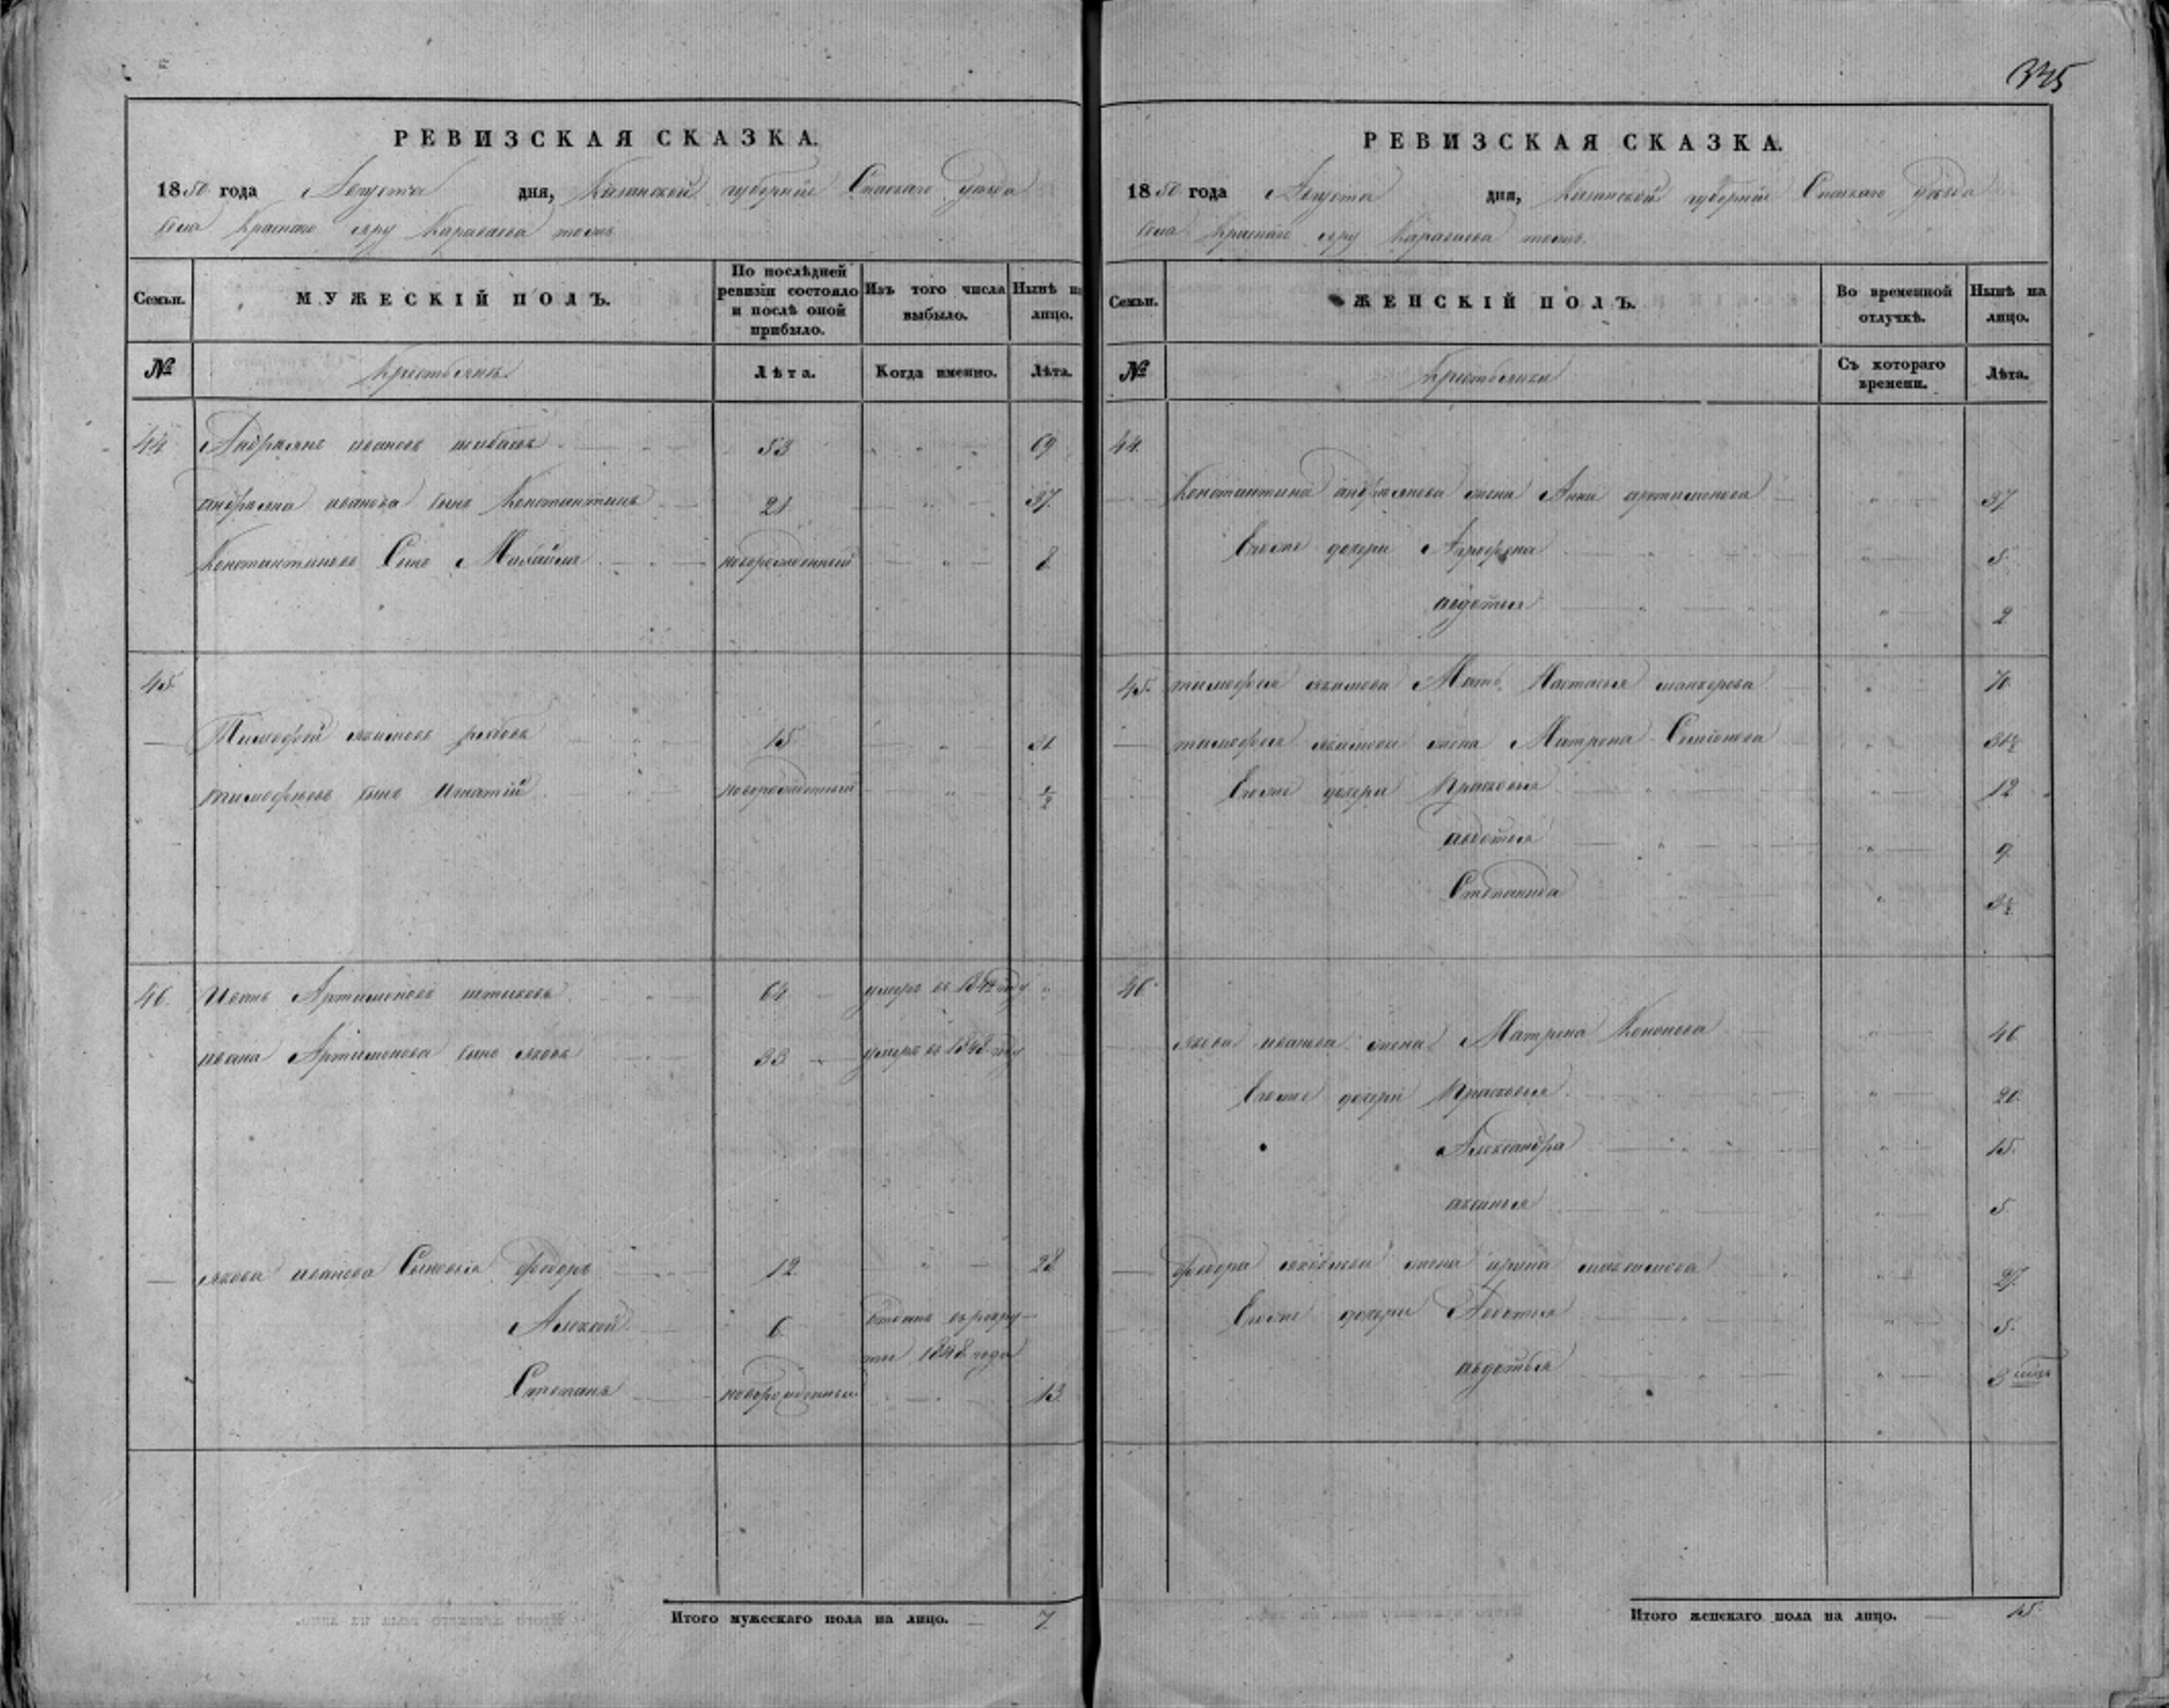 335
РЕВИЗСКАЯ СКАЗКА.
1850 года Августа дня, Казанской губернiи Спаскаго уѣзда
села Краснаго яру Караваева тожъ
Семьи. МУЖЕСКІЙ ПОЛЪ. По послѣдней ревизіи состояло и послѣ оной прибыло. Изъ того числа выбыло. Нынѣ на лицо.
№ Крестьянъ. Лѣта. Когда именно. Лѣта.
44 Андраянъ ивановъ 53 " " 69
андраяна иванова сынъ Константинъ 21 " 37
Константиновъ Сынъ Михайла новорожденный " 8
45
Тимофей якимовъ рябовъ 15 " 31
тимофѣевъ сынъ игнатiй новорожденный " 1/2
46. Иванъ Артимоновъ 64 умеръ въ 1842 году "
ивана Артимонова сынъ яковъ 33 умеръ въ 1848 году
якова иванова Сыновья федоръ 12 " 28
Алексей 6 отданъ въ рекру-
ты 1848 года
Степанъ новорожденный " 13
Итого мужескаго пола на лицо. 7
РЕВИЗСКАЯ СКАЗКА.
1850 года Августа дня, Казанской губернiи Спаскаго уѣзда
села Краснаго яру Караваева тожъ.
Семьи. ЖЕНСКІЙ ПОЛЪ. Во временной отлучкѣ. Нынѣ на лицо.
№ Крестьянки Съ котораго времени. Лѣта.
44.
Константина андраянова жена Анна артимонова " 37
Ево же дочери Агрофена " 5
авдотья " 2
45. тимофея якимова Мать Настасья " 70
тимофея якимова жена Матрена Семiонова "
Ево же дочери Прасковья " 12
авдотья " 9
Степанида "
46
якова иванова жена Матрена Кононова " 46
Ево же дочери Прасковья " 20
Александра " 15
аксинья " 5
федора яковлева жена ирина максимова " 27
Ево же дочери Авдотья " 5
авдотья " 3
Итого женскаго пола на лицо. 15